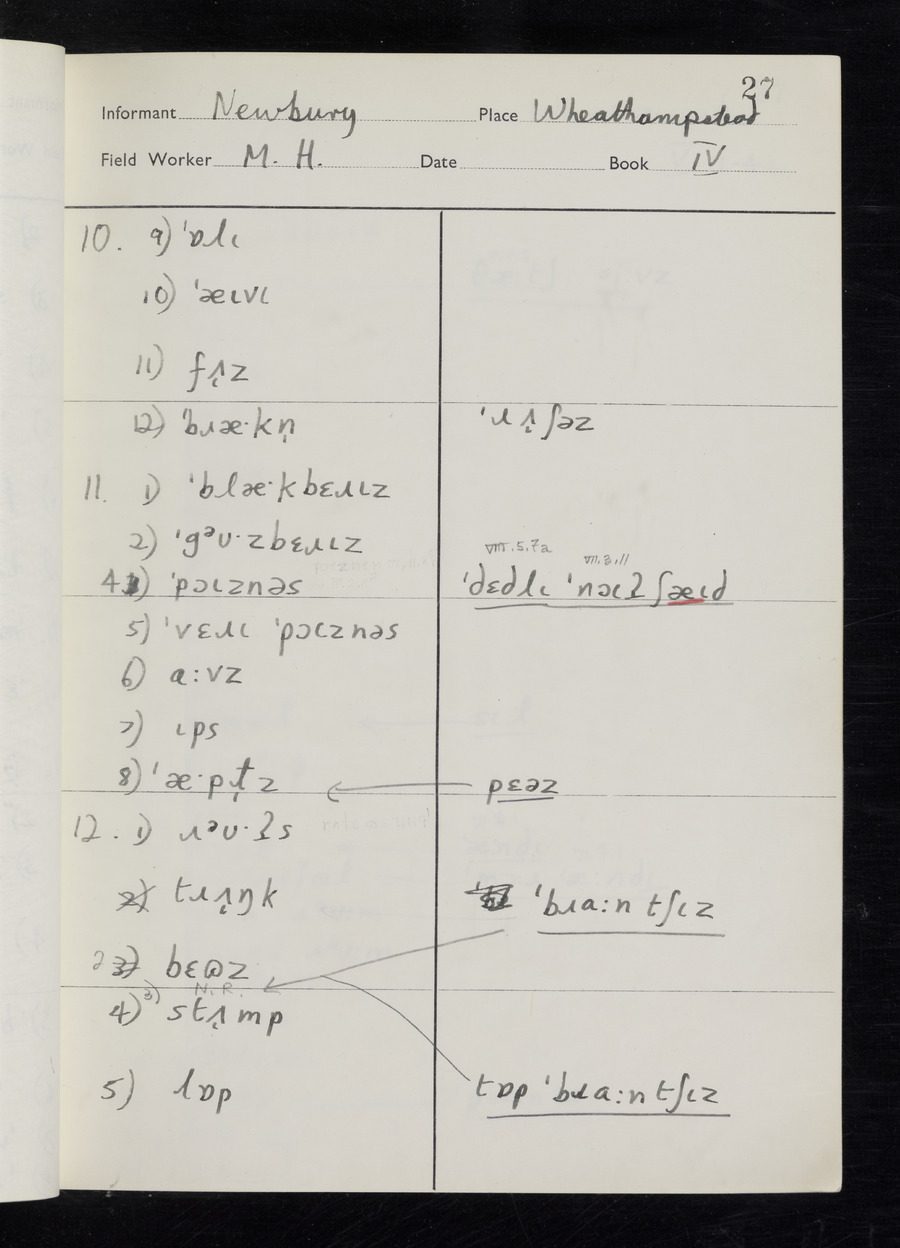 27
Informant Newbury Place Wheathampstead
Field Worker M. H. Date Book IV
10. 9) ˈɒlɩ
10) ˈæɩvɩ
11) fʌ̨z
12) ˈbɹæ·kn̩ ˈɹʌ̨ʃəz
11. 1) ˈblæ·kbɛɹɩz
2) ˈgᵊʊ·zbɛɹɩz
VIII.5.7a VII.3.11
4) ˈpɔɩznəs ˈdɛdlɩ ˈnəɩʔʃæɩd
5) ˈvɛɹɩ ˈpɔɩznəs
6) a:vz
7) ɩps
8) ˈæ·pɫ̩z pɛəz
12. 1) ɹᵊʊ·ʔs
2) tɹʌ̨ŋk ˈbɹa:ntʃɩz
2 3) bɛɷz
N.R.
4) 3) stʌ̨mp
5) lɒp tɒp ˈbɹa:ntʃɩz